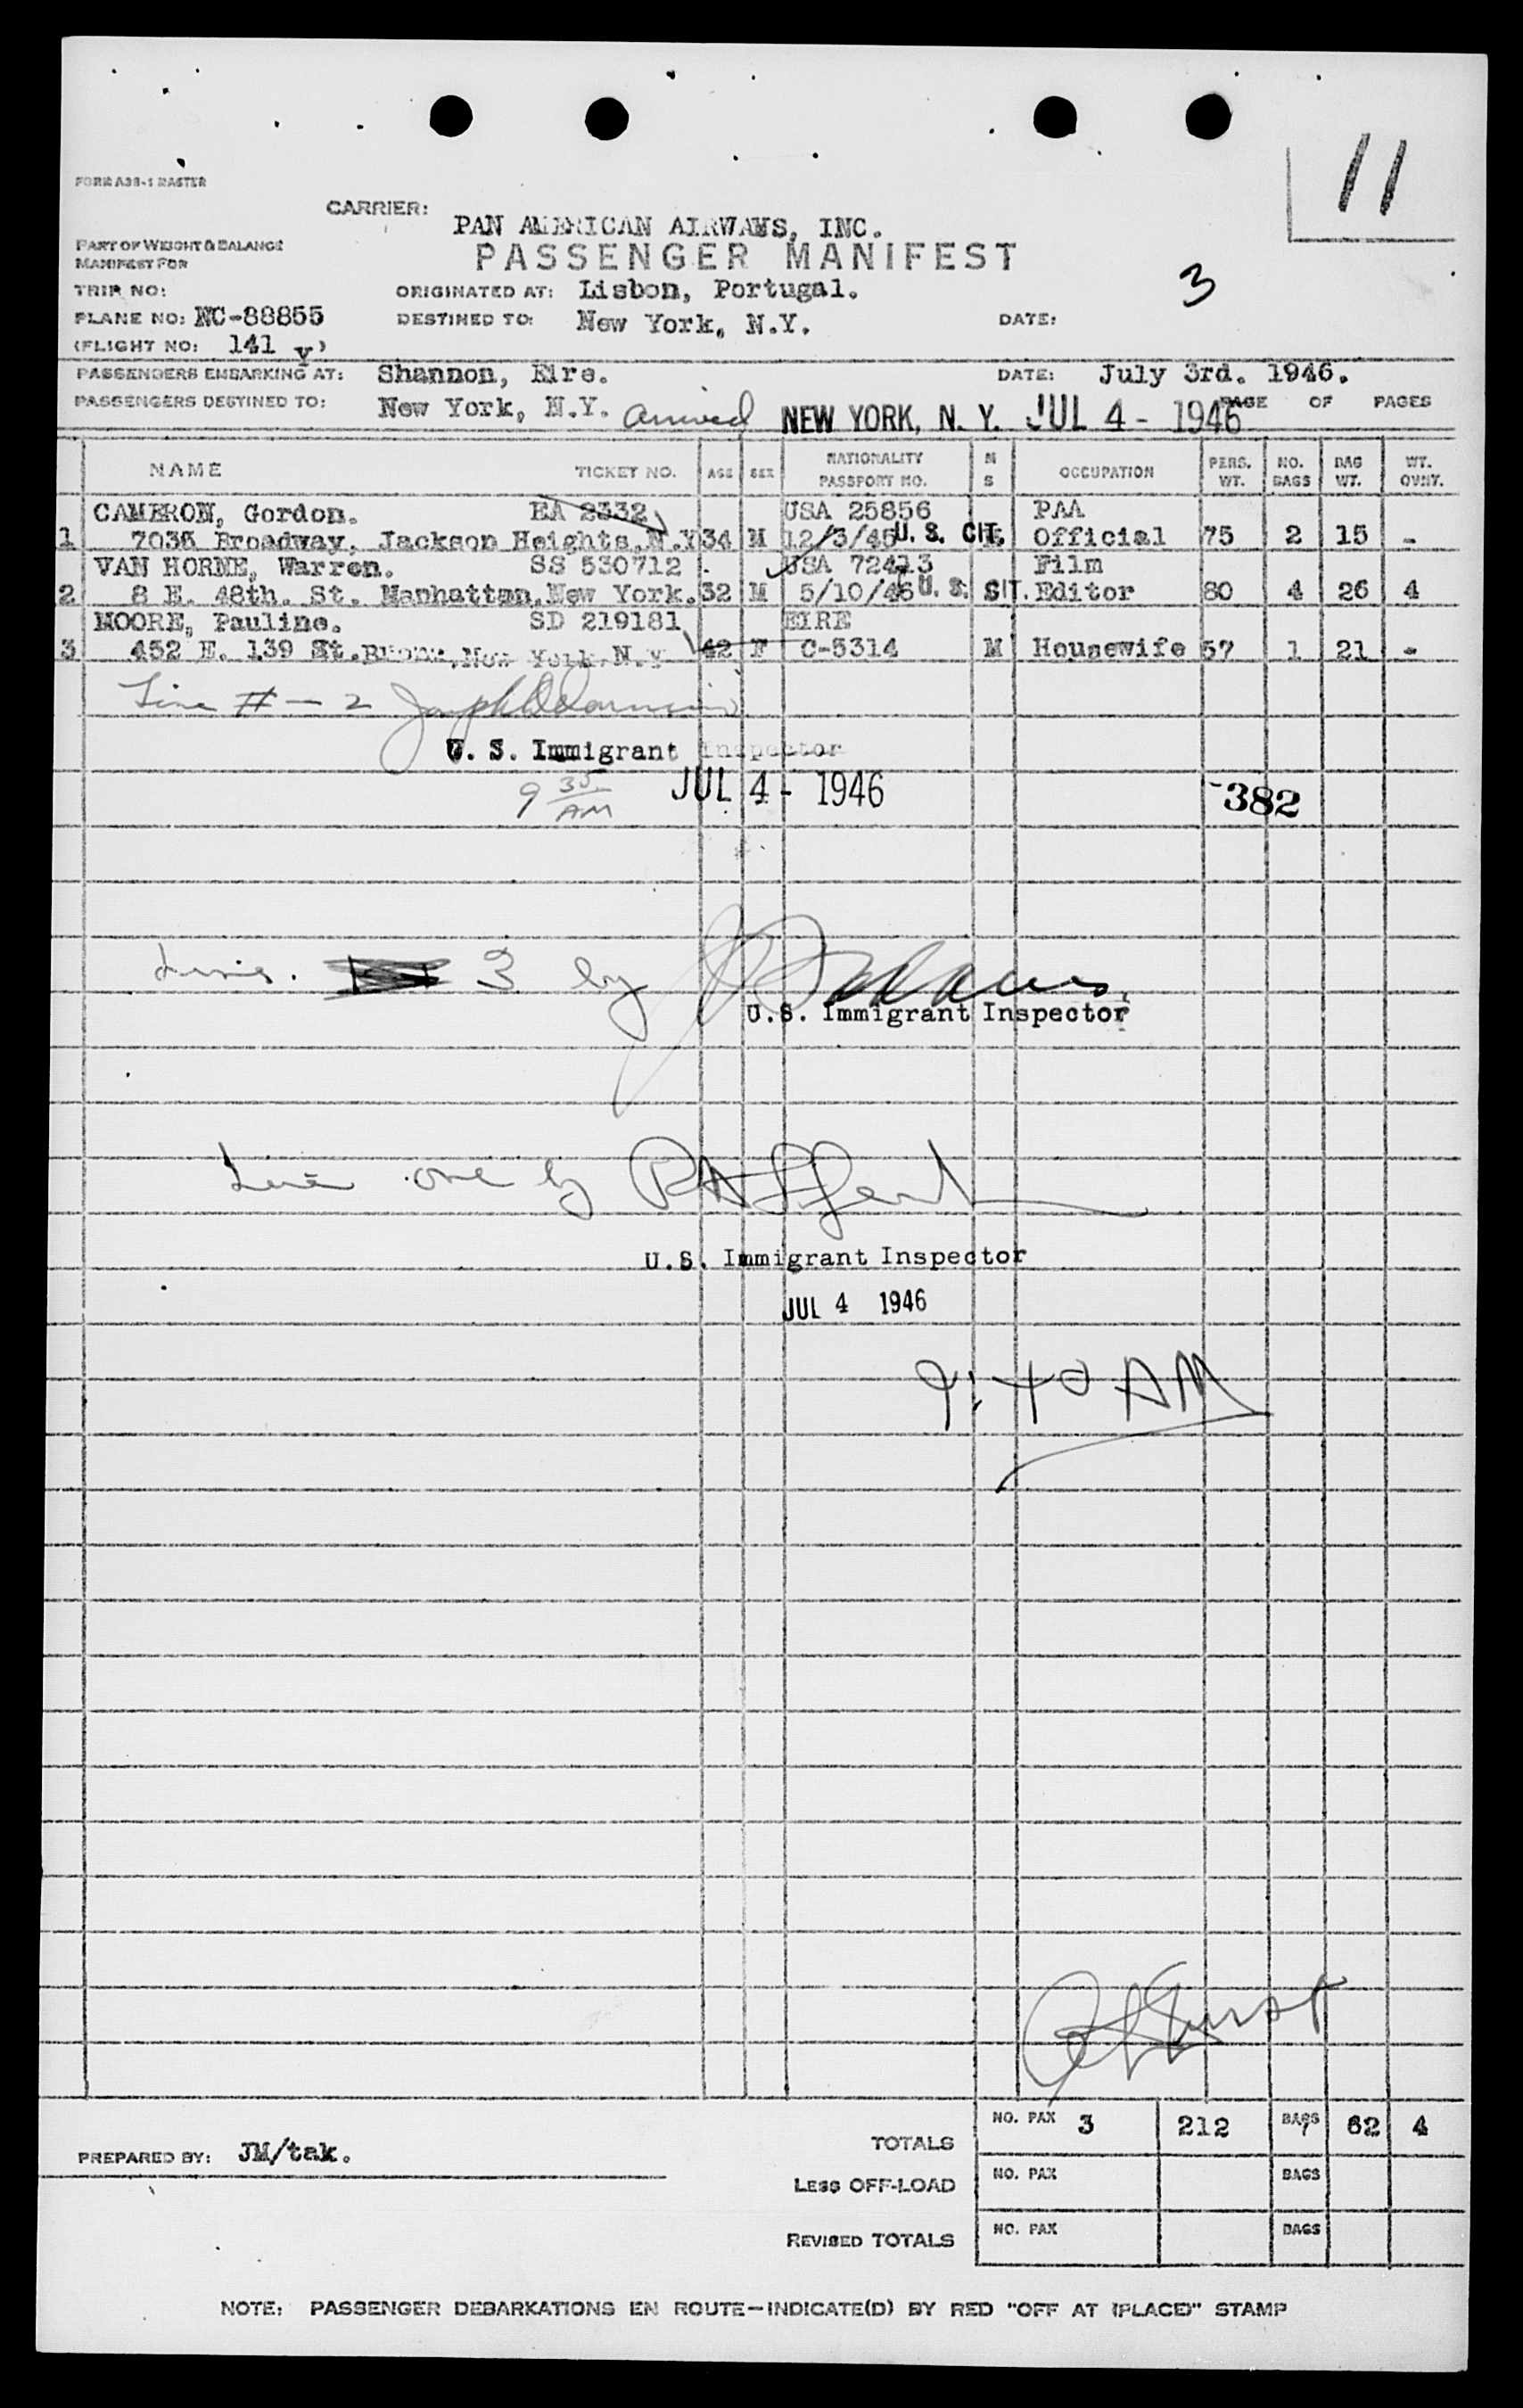 11
FORM A38-1 MASTER
CARRIER: PAN AMERICAN AIRWAYS, INC.
PART OF WEIGHT & BALANCE
MANIFEST FOR
PASSENGER MANIFEST
3
TRIP NO: ORIGINATED AT: Lisbon, Portugal.
PLANE NO: NC-88855 DESTINED TO: New York, N.Y. DATE:
(FLIGHT NO: 141 )
PASSENGERS EMBARKING AT: Shannon, Eire. DATE: July 3rd. 1946.
PASSENGERS DESTINED TO: New York, N.Y. arrived NEW YORK, N. Y. JUL 4 - 1946 PAGE OF PAGES
NAME TICKET NO. AGE SEX NATIONALITY PASSPORT NO. M S OCCUPATION PERS. WT. NO. BAGS BAG WT. WT. OVWT.
CAMERON, Gordon. EA 2332 USA 25856 PAA
1 7035 Broadway, Jackson Heights, N.Y 34 M 12/3/45 U. S. CIT. Official 75 2 15 -
VAN HORNE, Warren. SS 530712 USA 72413 Film
2 8 E. 48th. St. Manhattan, New York. 32 M 5/10/46 U. S. CIT. Editor 80 4 26 4
MOORE, Pauline. SD 219181 EIRE
3 452 E. 139 St. Bronx, New York, N.Y 42 F C-5314 M Housewife 57 1 21 -
Line # - 2
U. S. Immigrant Inspector
9 35 AM JUL 4 - 1946 382
3 by
U.S. Immigrant Inspector
Line one by
U.S. Immigrant Inspector
JUL 4 1946
9:40 AM
TOTALS NO. PAX 3 212 BAGS 7 62 4
PREPARED BY: JM/tak.
LESS OFF-LOAD NO. PAX BAGS
REVISED TOTALS NO. PAX BAGS
NOTE: PASSENGER DEBARKATIONS EN ROUTE-INDICATE(D) BY RED "OFF AT (PLACE)" STAMP